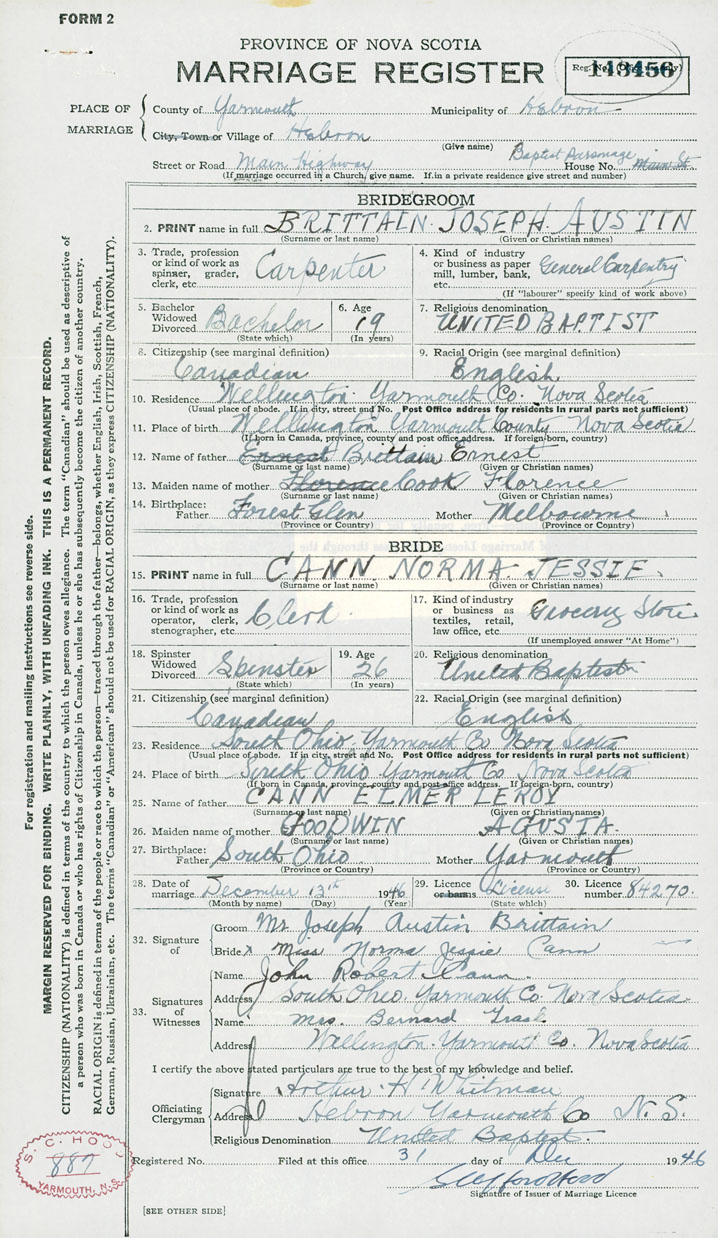 FORM 2
PROVINCE OF NOVA SCOTIA
MARRIAGE REGISTER
Reg. No. 143456
PLACE OF MARRIAGE
County of Yarmouth Municipality of Hebron
City, Town or Village of Hebron
(Give name)
Baptist Parsonage
Street or Road Main Highway House No. Main St.
(If marriage occurred in a Church, give name. If in a private residence give street and number)
BRIDEGROOM
2. PRINT name in full BRITTAIN JOSEPH AUSTIN
(Surname or last name) (Given or Christian names)
3. Trade, profession or kind of work as spinner, grader, clerk, etc. Carpenter
4. Kind of industry or business as paper mill, lumber, bank, etc. General Carpentry
(If "labourer" specify kind of work above)
5. Bachelor Widowed Divorced Bachelor
(State which)
6. Age 19
(In years)
7. Religious denomination
UNITED BAPTIST
8. Citizenship (see marginal definition)
Canadian
9. Racial Origin (see marginal definition)
English
10. Residence Wellington Yarmouth Co. Nova Scotia
(Usual place of abode. If in city, street and No. Post Office address for residents in rural parts not sufficient)
11. Place of birth Wellington Yarmouth County Nova Scotia
(If born in Canada, province, county and post office address. If foreign-born, country)
12. Name of father Ernest Brittain Ernest
(Surname or last name) (Given or Christian names)
13. Maiden name of mother Florence Cook Florence
(Surname or last name) (Given or Christian names)
14. Birthplace: Father Forest Glen Mother Melbourne
(Province or Country) (Province or Country)
BRIDE
15. PRINT name in full CANN NORMA JESSIE.
(Surname or last name) (Given or Christian names)
16. Trade, profession or kind of work as operator, clerk, stenographer, etc. Clerk
17. Kind of industry or business as textiles, retail, law office, etc. Grocery Store
(If unemployed answer "At Home")
18. Spinster Widowed Divorced Spinster
(State which)
19. Age 26
(In years)
20. Religious denomination
United Baptist
21. Citizenship (see marginal definition)
Canadian
22. Racial Origin (see marginal definition)
English
23. Residence South Ohio, Yarmouth Co Nova Scotia
(Usual place of abode. If in city, street and No. Post Office address for residents in rural parts not sufficient)
24. Place of birth South Ohio Yarmouth Co Nova Scotia
(If born in Canada, province, county and post office address. If foreign-born, country)
25. Name of father CANN ELMER LEROY
(Surname or last name) (Given or Christian names)
26. Maiden name of mother GOODWIN AGUSTA.
(Surname or last name) (Given or Christian names)
27. Birthplace: Father South Ohio Mother Yarmouth
(Province or Country) (Province or Country)
28. Date of marriage December 13th 1946
(Month by name) (Day) (Year)
29. Licence or banns License
(State which)
30. Licence number 84270.
32. Signature of
Groom Mr Joseph Austin Brittain
Bride x Miss Norma Jessie Cann
33. Signatures of Witnesses
Name John Robert Cann.
Address South Ohio. Yarmouth Co Nova Scotia.
Name Mrs. Bernard Trask
Address Wellington. Yarmouth Co. Nova Scotia
I certify the above stated particulars are true to the best of my knowledge and belief.
Officiating Clergyman
Signature Arthur H Whitman
Address Hebron Yarmouth Co N.S.
Religious Denomination United Baptist.
Registered No. Filed at this office 31 day of Dec 1946
Signature of Issuer of Marriage Licence
[SEE OTHER SIDE]
S. C. HOOD
887
YARMOUTH, N.S.
For registration and mailing instructions see reverse side.
MARGIN RESERVED FOR BINDING. WRITE PLAINLY, WITH UNFADING INK. THIS IS A PERMANENT RECORD.
CITIZENSHIP (NATIONALITY) is defined in terms of the country to which the person owes allegiance. The term "Canadian" should be used as descriptive of
a person who was born in Canada or who has rights of Citizenship in Canada, unless he or she has subsequently become the citizen of another country.
RACIAL ORIGIN is defined in terms of the people or race to which the person—traced through the father—belongs, whether English, Irish, Scottish, French,
German, Russian, Ukrainian, etc. The terms "Canadian" or "American" should not be used for RACIAL ORIGIN, as they express CITIZENSHIP (NATIONALITY).